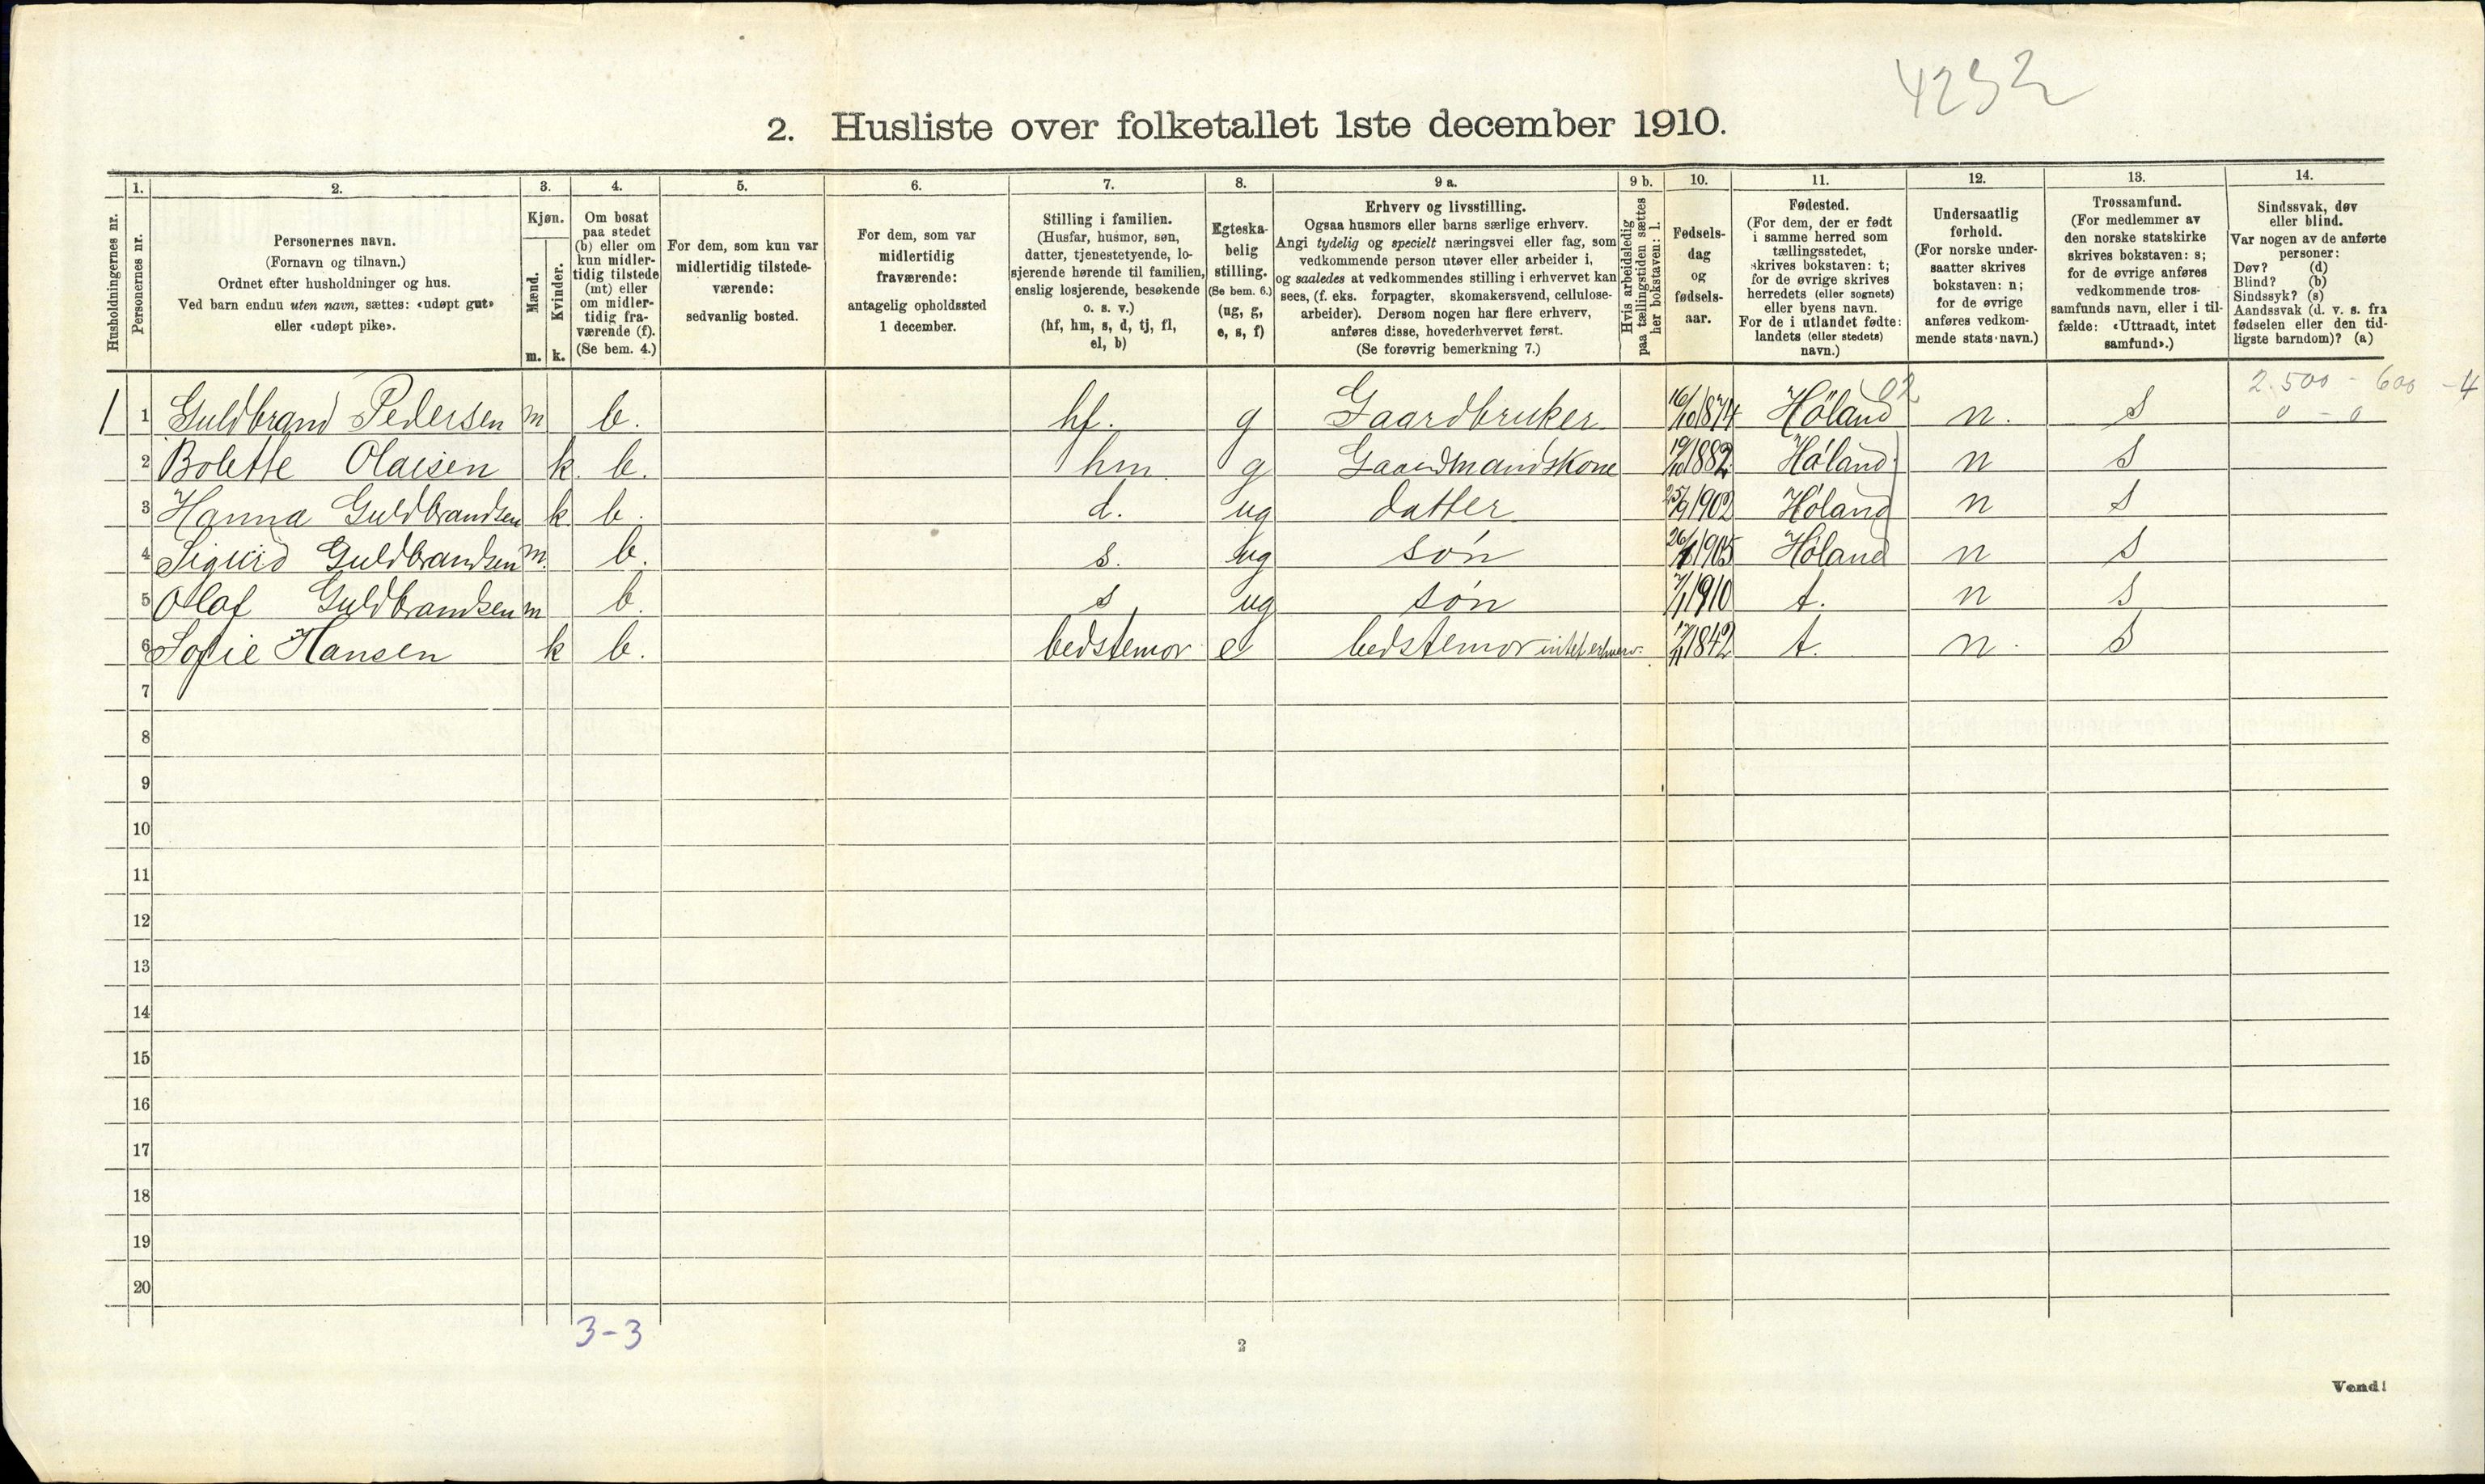 4232
2. Husliste over folketallet 1ste december 1910.
1. 2. 3. 4. 5. 6. 7. 8. 9 a. 9 b. 10. 11. 12. 13. 14.
Husholdningernes nr.
Personernes nr.
Personernes navn.
(Fornavn og tilnavn.)
Ordnet efter husholdninger og hus.
Ved barn endnu uten navn, sættes: «udøpt gut»
eller «udøpt pike».
Kjøn.
Mænd.
m.
Kvinder.
k.
Om bosat
paa stedet
(b) eller om
kun midler-
tidig tilstede
(mt) eller
om midler-
tidig fra-
værende (f).
(Se bem. 4.)
For dem, som kun var
midlertidig tilstede-
værende:
sedvanlig bosted.
For dem, som var
midlertidig
fraværende:
antagelig opholdssted
1 december.
Stilling i familien.
(Husfar, husmor, søn,
datter, tjenestetyende, lo-
sjerende hørende til familien,
enslig losjerende, besøkende
o. s. v.)
(hf, hm, s, d, tj, fl,
el, b)
Egteska-
belig
stilling.
(Se bem. 6.)
(ug, g,
e, s, f)
Erhverv og livsstilling.
Ogsaa husmors eller barns særlige erhverv.
Angi tydelig og specielt næringsvei eller fag, som
vedkommende person utøver eller arbeider i,
og saaledes at vedkommendes stilling i erhvervet kan
sees, (f. eks. forpagter, skomakersvend, cellulose-
arbeider). Dersom nogen har flere erhverv,
anføres disse, hovederhvervet først.
(Se forøvrig bemerkning 7.)
Hvis arbeidsledig
paa tællingstiden sættes
her bokstaven: l.
Fødsels-
dag
og
fødsels-
aar.
Fødested.
(For dem, der er født
i samme herred som
tællingsstedet,
skrives bokstaven: t;
for de øvrige skrives
herredets (eller sognets)
eller byens navn.
For de i utlandet fødte:
landets (eller stedets)
navn.)
Undersaatlig
forhold.
(For norske under-
saatter skrives
bokstaven: n;
for de øvrige
anføres vedkom-
mende stats navn.)
Trossamfund.
(For medlemmer av
den norske statskirke
skrives bokstaven: s;
for de øvrige anføres
vedkommende tros-
samfunds navn, eller i til-
fælde: «Uttraadt, intet
samfund».)
Sindssvak, døv
eller blind.
Var nogen av de anførte
personer:
Døv? (d)
Blind? (b)
Sindssyk? (s)
Aandssvak (d. v. s. fra
fødselen eller den tid-
ligste barndom)? (a)
02 2.500 - 600 - 4
1 1 Guldbrand Pedersen m b. hf. g Gaardbruker 16/10 1874 Höland n. S 0 - 0
2 Bolette Olaisen k. b. hm g Gaardmandskone 19/10 1882 Höland n S
3 Hanna Guldbrandsen k b. d. ug datter 25/9 1902 Höland n S
4 Sigurd Guldbrandsen m. b. s. ug søn 1905 Höland n S
5 Olaf Guldbrandsen m b. s. ug søn 7/1 1910 t. n S
6 Sofie Hansen k b. bedstemor e bedstemor intet erhverv. 1842 t. n. S
7
8
9
10
11
12
13
14
15
16
17
18
19
20
3-3
2
Vend!